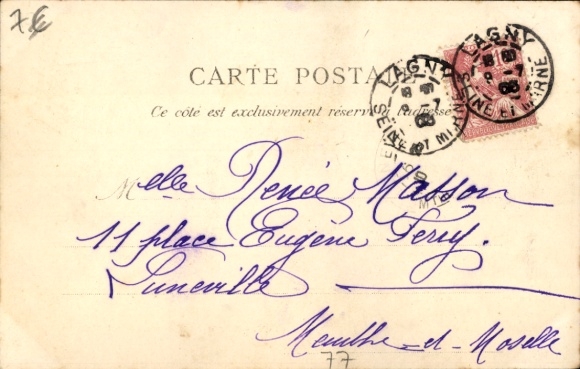 7€
CARTE POSTA
Ce côté est exclusivement réservé à l'adresse
LAGNY
SEINE ET MARNE
LAGNY
SEINE ET MARNE
Melle Renée Masson
11 place Eugène Ferry.
Lunéville
Meurthe-et-Moselle
77